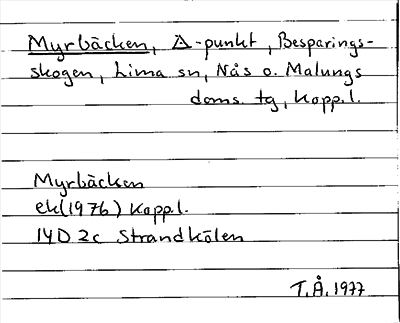 Myrbäcken, A-punkt, Besparings-
skogen, Lima sn, Nås o. Malungs
doms. tg, Kopp.l.
Myrbäcken
ek(1976) Kopp.l.
14D 2c Strandkölen
T.Å. 1977